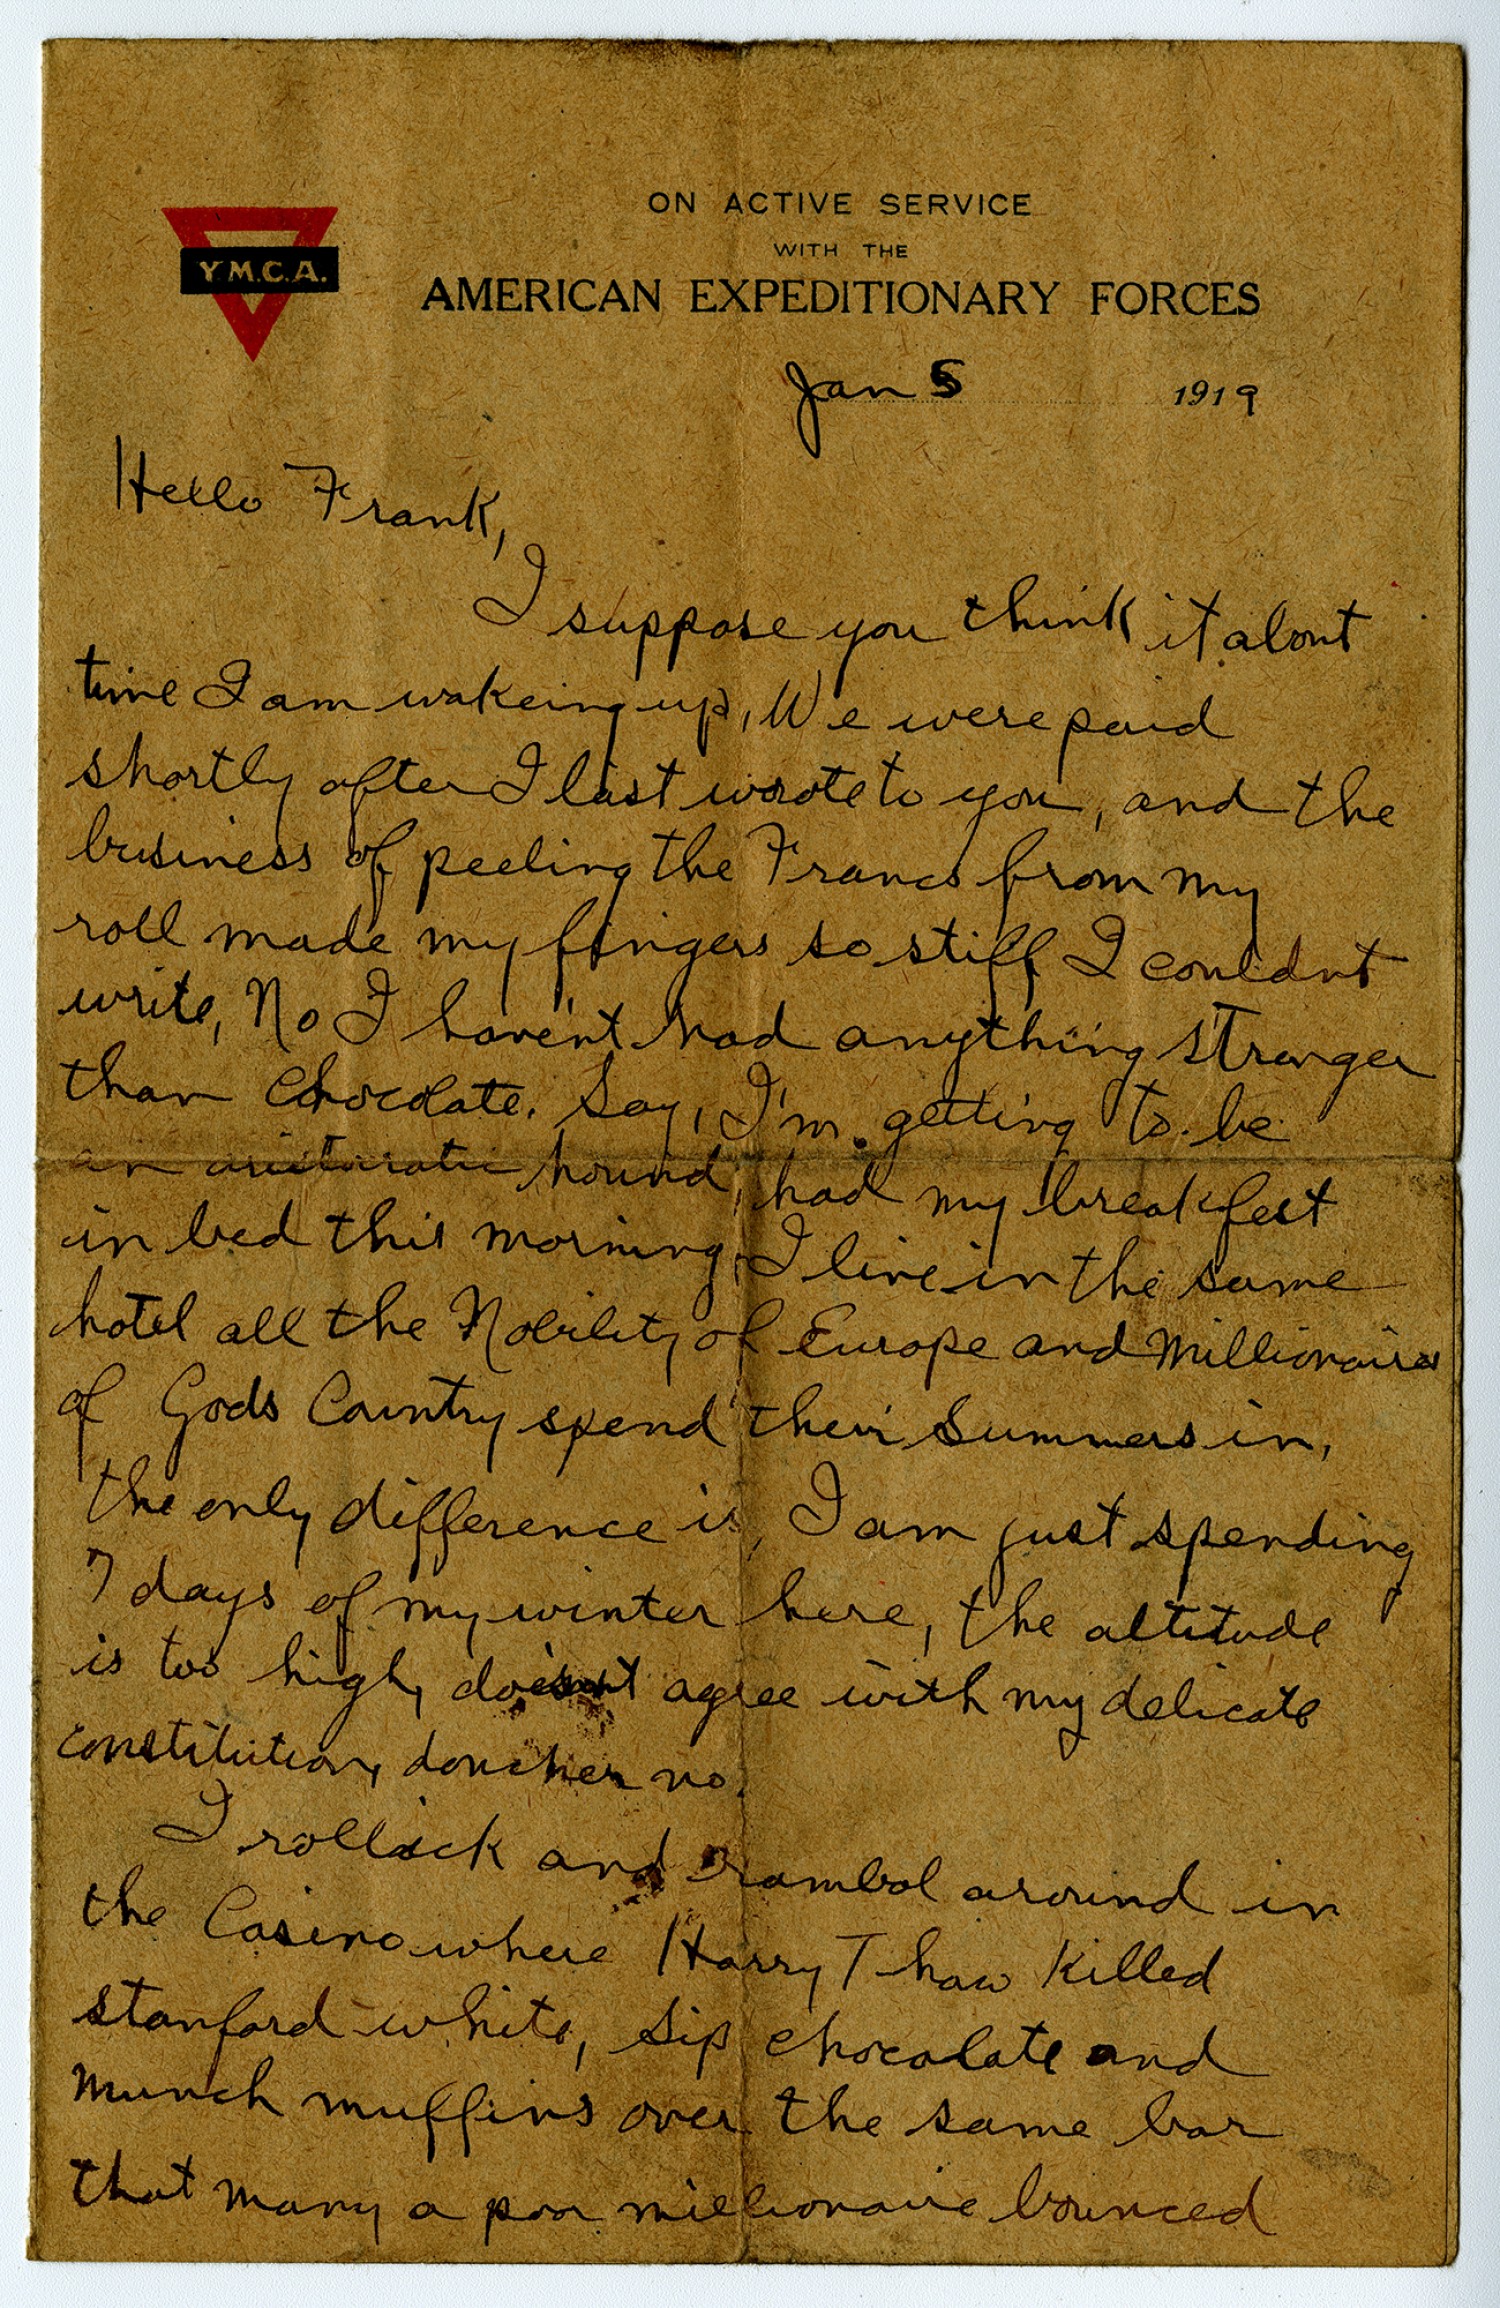 ON ACTIVE SERVICE
WITH THE
Y.M.C.A.
AMERICAN EXPEDITIONARY FORCES
Jan 5 1919
Hello Frank,
I suppose you think it about
time I am wakeing up, We were paid
shortly after I last wrote to you, and the
business of peeling the Francs from my
roll made my fingers so stiff I couldnt
write, No I haven't had anything stronger
than Chocolate. Say, I'm getting to be
an hound, had my breakfest
in bed this morning, I live in the same
hotel all the Nobility of Europe and Millionaires
of Gods Country spend their summers in,
the only difference is, I am just spending
7 days of my winter here, the altitude
is too high, doesnt agree with my delicate
constitution, doncher no.
I rollick and rambol around in
the Casino where Harry Thaw Killed
Stanford White, sip chocolate and
munch muffins over the same bar
that many a poor millionaire bounced